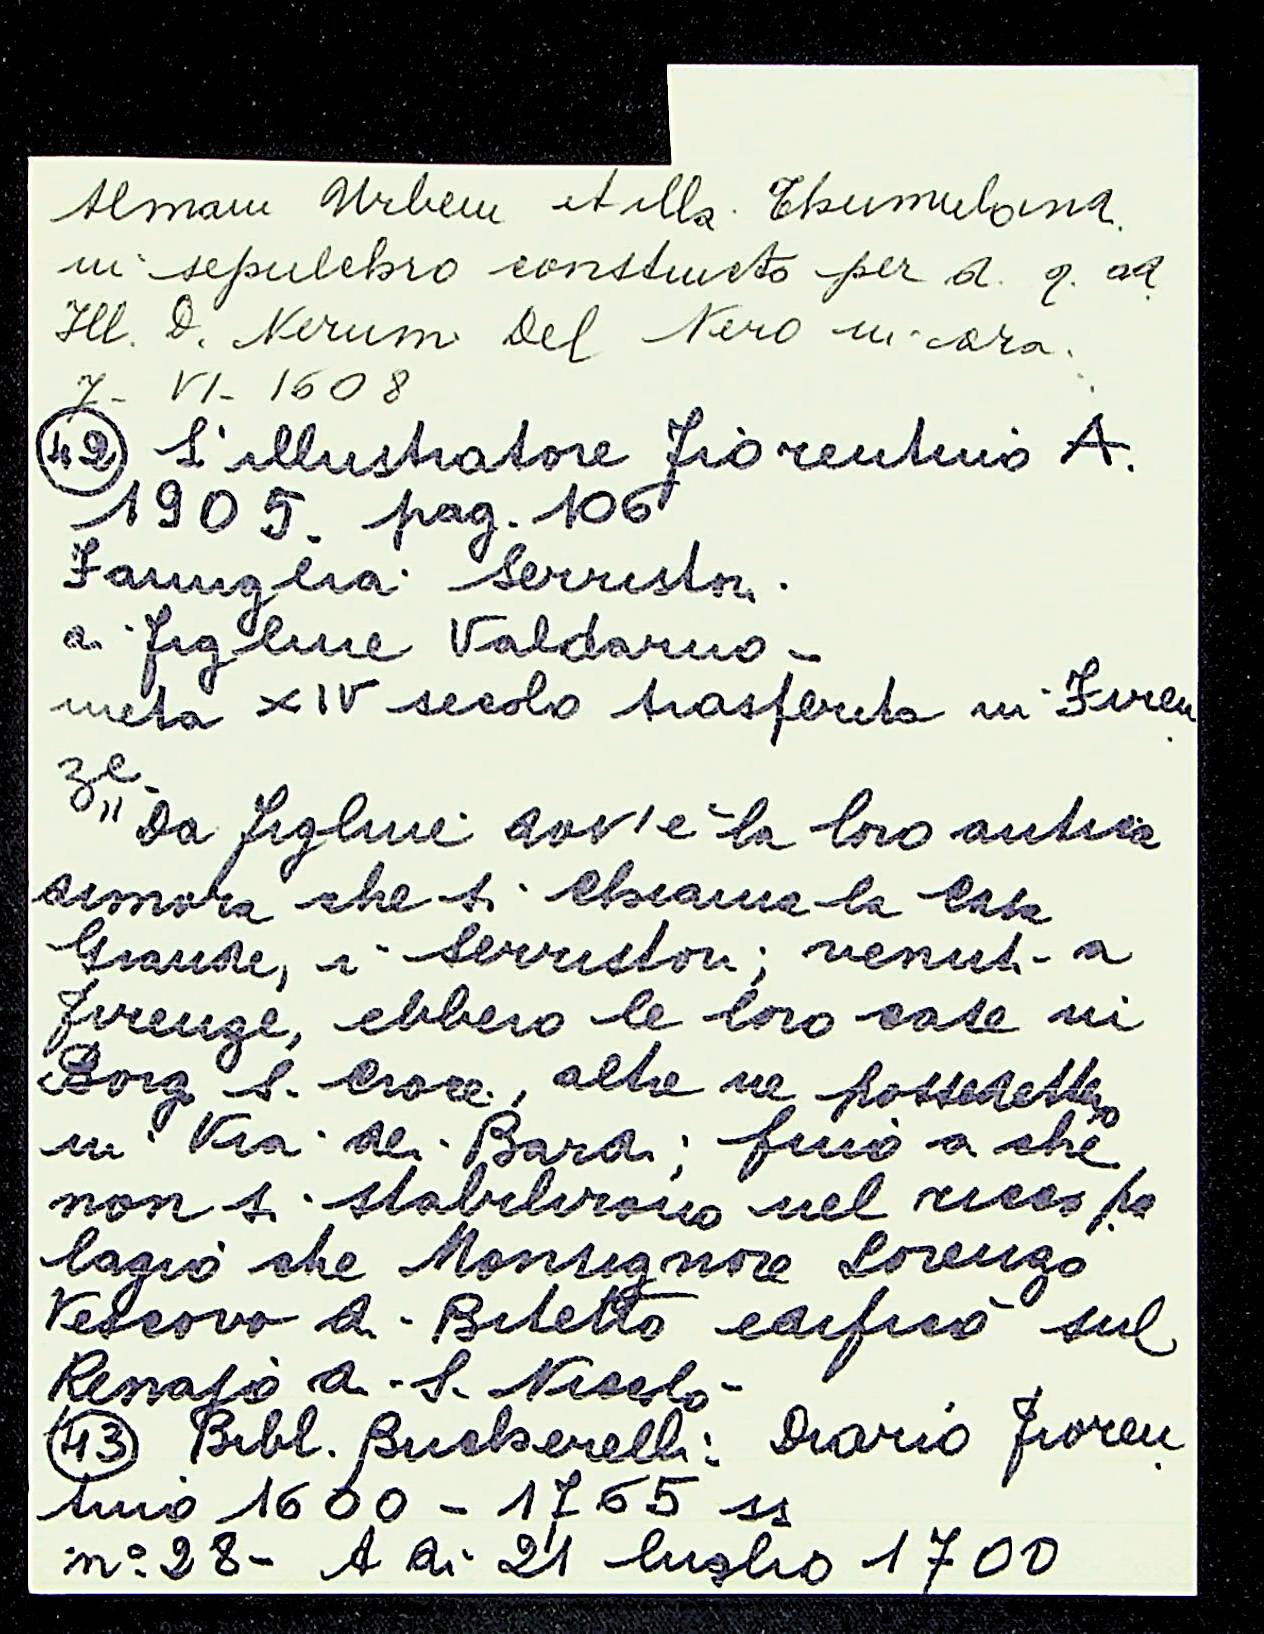 Almam Urbem et illa Thumuland.
in sepulchro constructo per d. q. ad
Ill. D. Nerum Del Nero in cora.
7- VI- 1608
(42) L'illustratore Fiorentino A.
1905. pag. 106
Famiglia Serristori.
a Figline Valdarno -
metà XIV secolo trasferita in Firen
ze.
"Da Figline dov'è la loro antica
dimora che si chiama la Casa
Grande, i Serristori; venuti a
Firenze, ebbero le loro case in
Borg. S. Croce, altre ne possedettero
in Via dei Bardi; finò a che
non si stabilirono nel ricco pa
lagio che Monsignore Lorenzo
Vescovo di Bitetto edificò sul
Renajo di S. Nicolò -
(43) Bibl. Buckerelli: Diario Fioren
tino 1600 - 1765
n°. 28 - A di 21 luglio 1700